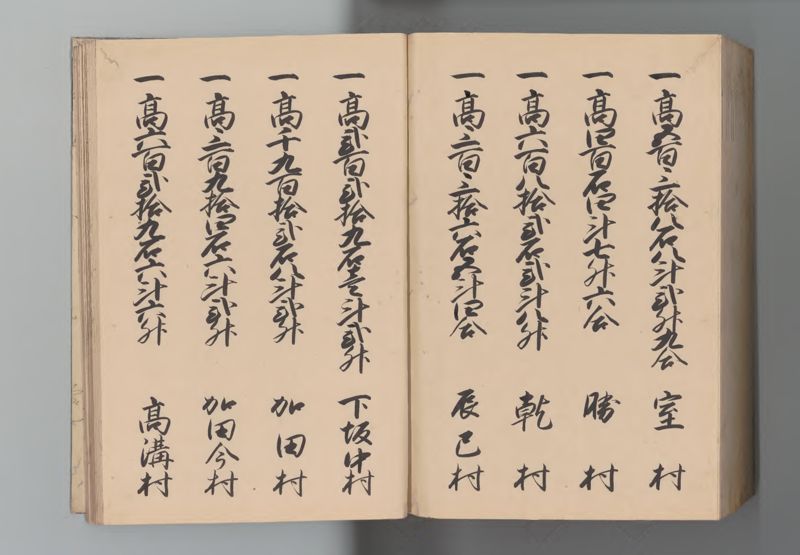 一高五百三拾八石八斗弐升九合 室村
一高四百石四斗七升六合 勝村
一高六百八拾弐石弐斗八升 乾村
一高三百三拾六石五斗四合 辰巳村
一高弐百弐拾九石壱斗弐升 下坂中村
一高千九百拾弐石八斗弐升 加田村
一高三百九拾四石六斗弐升 加田今村
一高六百弐拾九石六斗六升 高溝村